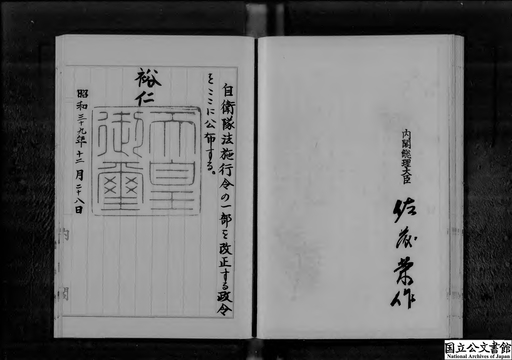 自衛隊法施行令の一部を改正する政令
をここに公布する。
裕仁
天皇
御璽
昭和三十九年十二月二十八日
内閣総理大臣
佐藤栄作
国立公文書館
National Archives of Japan